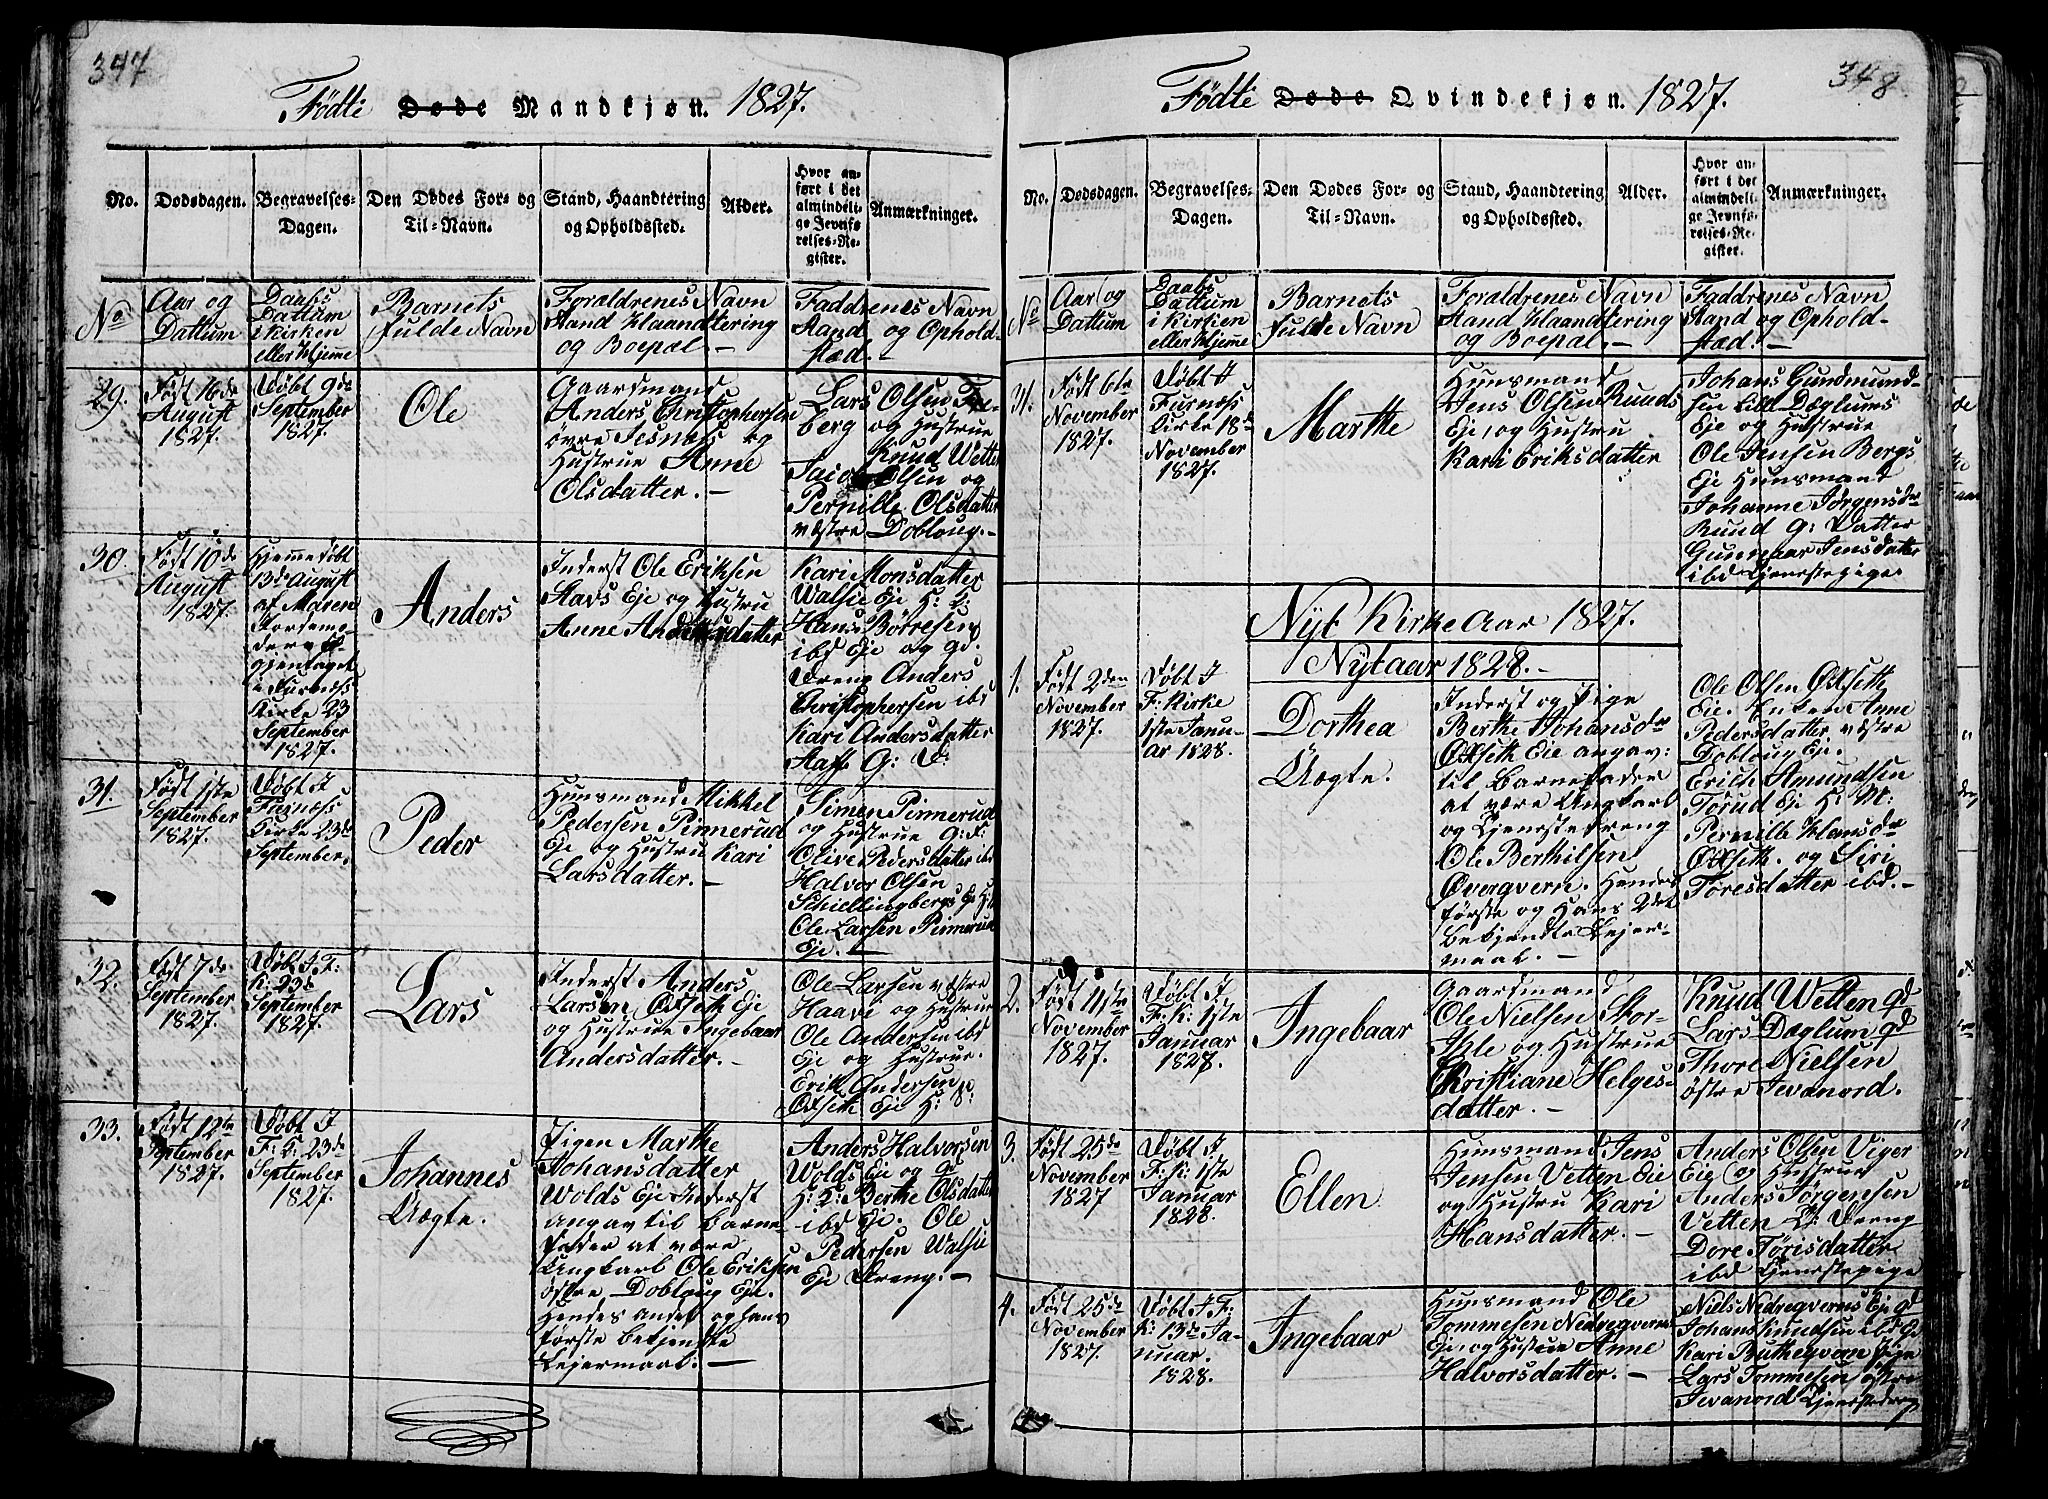 347
Födte Døde Mandkjøn. 1827.
No.
Dødsdagen.
Begravelses-
Dagen.
Den Dødes For- og
Til-Navn.
Stand, Haandtering
og Opholdssted.
Alder.
Hvor an-
ført i det
almindeli-
ge Jevnfø-
relses-Re-
gister.
Anmærkninger.
No
Aar og
Dattum
Daabs
Dattum
i Kirken
eller Hjeme
Barnets
fulde Navn
Foraldrenes Navn
Stand Haandtering
og Boepæl. –
Faddrenes Navn
Stand og Ophold-
stæd. –
29.
Født 16de
August
1827.
Døbt 9de
September
1827.
Ole
Gaardmand
Anders Christophersen
øvre Jesnes og
Hustrue Anne
Olsdatter. –
Lars Olsen
berg og Hustrue
Knud Wetten
Jacob Olsen og
Pernille Olsdatter
væstre Dobloug. –
30.
Født 10de
August
1827.
Hjemmedøbt
13de August
af Maren
Jordemo-
der
gjentaget
i Furnæss
Kirke 23
September
1827.
Anders
Inderst Ole Eriksen
Stavs Eje og Hustru
Anne Andersdatter
Kari Monsdatter
Walsie Eje H:
Hans Børresen
ibd Eje og gd.
Dreng Anders
Christophersen ibd
Kari Andersdatter
Staff G: D:
31.
Født 1ste
September
1827.
Døbt I
Furnæss
Kirke 23de
September.
Peder
Huusmand Mikkel
Pedersen Pinnerud
Eje og Hustru Kari
Larsdatter. –
Simen Pinnerud
og Hustrue G: F:
Olive Pedersdatter ibd
Halvor Olsen
Schiellingbergs Eje H:
Ole Larsen Pinnerud
Eje. –
32.
Født 7de
September
1827.
Døbt I F:
K: 23de
September
1827.
Lars
Inderst Anders
Larsen Oxseth Eje
og Hustrue Ingebaar
Andersdatter. –
Ole Larsen væstre
Haave og Hustrue
Ole Andersen ibd
Eje og Hustrue.
Erik Andersen
Oxseth Eje H: S:
33.
Født 12te
September
1827.
Døbt I
F: K: 23de
September
1827.
Johannes
Uægte.
Pigen Marthe
Johansdatter
Wolds Eje Inderst
angav til Barne
fader at være
Ungkarl Ole Eriksen
østre Dobloug Eje.
Hendes andet og hans
første bekjendte
Lejermaal. –
Anders Halvorsen
Wolds Eje og gd
H: Q: Berthe Olsdatter
ibd Eje. Ole
Pedersen Walsie
Eje Dreng. –
348
Födte Døde Qvindekjøn. 1827.
No.
Dødsdagen.
Begravelses-
Dagen.
Den Dødes For- og
Til-Navn.
Stand, Haandtering
og Opholdssted.
Alder.
Hvor an-
ført i det
almindeli-
ge Jevnfø-
relses-Re-
gister.
Anmærkninger.
No
Aar og
Dattum
Daabs
Dattum
i Kirken
eller Hjeme
Barnets
fulde Navn
Foraldrenes Navn
Stand Haandtering
og Boepæl. –
Faddrenes Navn
Stand og Ophold-
stæd. –
31.
Født 6te
November
1827.
Døbt I
Furnæss
Kirke 18de
November
1827.
Marthe
Huusmand
Jens Olsen Ruuds
Eje, og Hustru
Kari Eriksdatter
Johans Gundmund-
sen Lille Dæglums
Eje og Hustrue
Ole Jensen Bergs
Eje Huusmand
Johanne Jörgensdr
Ruud G: Datter
Gunnuar Jensdatter
ibd Tjenestepige
Nyt Kirke Aar 1827.
Nyt aar 1828. –
1.
Født 2den
November
1827.
Døbt I
F: Kirke
1ste Janu-
ar 1828.
Dorthea
Uægte.
Inderst og Pige
Berthe Johansdr
Oxseth Eje angav:
til Barnefader
at være Ungkarl
og Tjenestedreng
Ole Berthilsen
Øvergvern. Hendes
første og Hans 2det
bekjendte Lejer-
maal. –
Ole Olsen Oxseth
Eje. Enken Anne
Pedersdatter væstre
Dobloug Eje.
Erich Amundsen
Torud Eje H: M:
Pernille Hansdr
Oxseth. og Siri
Toresdatter ibd. –
2.
Født 11te
November
1827.
Døbt I
F: K: 1ste
Januar
1828.
Ingebaar
Gaardmand
Ole Nielsen Stor-
Ihle og Hustrue
Kristiane Helges-
datter. –
Knud Wetten gd
Lars Dæglum gd
Thore Nielsen
østre Jevanord.
3.
Født 25de
November
1827
Døbt I
F: K: 1ste
Januar
1828.
Ellen
Huusmand Jens
Jensen Vetten Eje
og Hustru Kari
Hansdatter. –
Anders Olsen Viger
Eje og Hustrue
Anders Jørgensen
Vetten Eje Dreng
Dore Törisdatter
ibd Tjenestepige
4.
Født 25de
November
1827.
Døbt I F:
K: 13de Ja-
nuar.
1828.
Ingebaar
Huusmand Ole
Tommesen Nedregverns
Eje, og Hustrue Anne
Halvorsdatter. –
Niels Nedregverns Eje gd
Johans Knudsen ibd
Kari Pige
Lars Tommesen østre
Jevanord Tjenestedreng